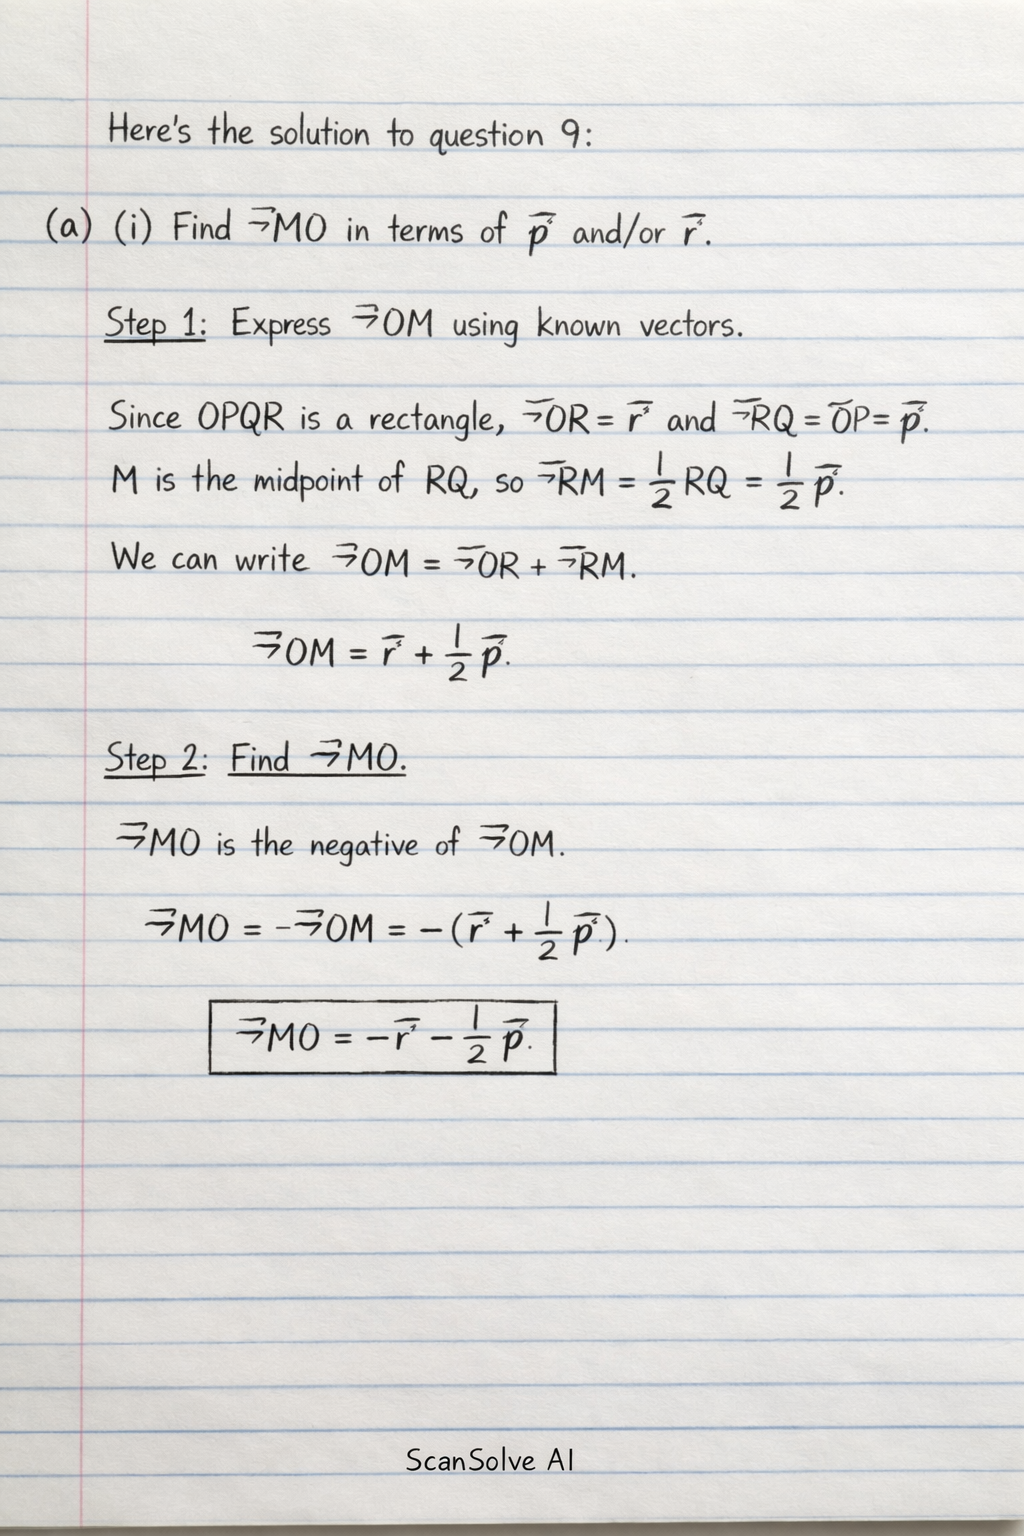 Here's the solution to question 9:
(a) (i) Find →MO in terms of p⃗ and/or r⃗.
Step 1: Express →OM using known vectors.
Since OPQR is a rectangle, →OR = r⃗ and →RQ = OP = p⃗.
M is the midpoint of RQ, so →RM = 1/2 RQ = 1/2 p⃗.
We can write →OM = →OR + →RM.
→OM = r⃗ + 1/2 p⃗.
Step 2: Find →MO.
→MO is the negative of →OM.
→MO = -→OM = -(r⃗ + 1/2 p⃗).
→MO = -r⃗ - 1/2 p⃗.
ScanSolve AI